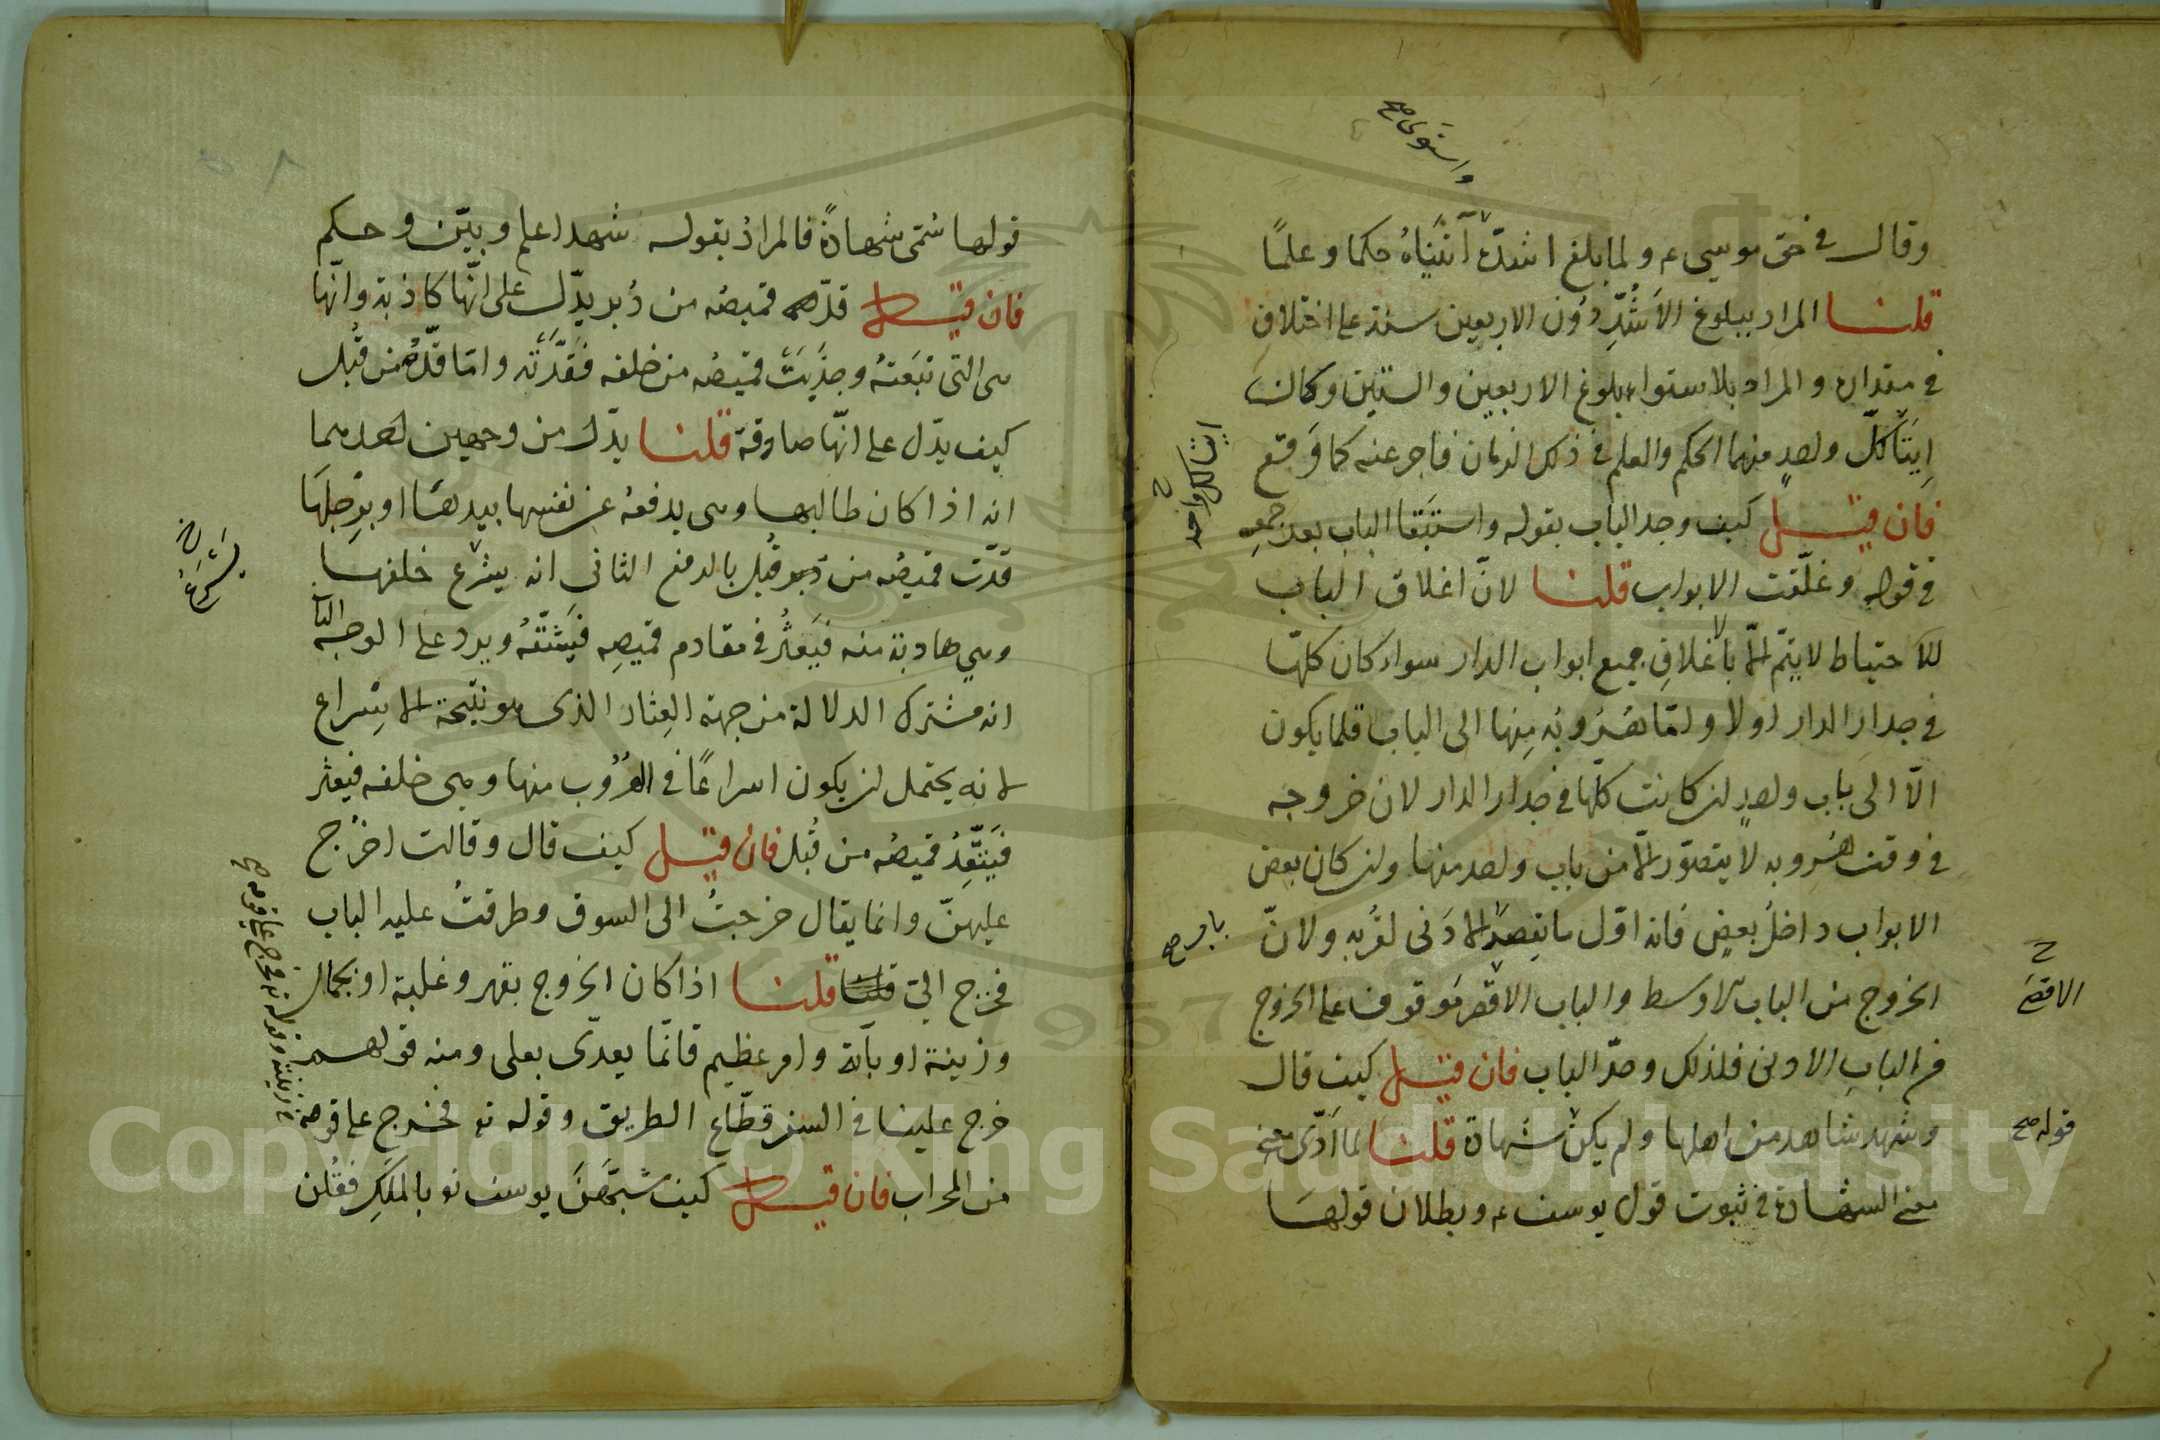 واستوى صح
وقال في حق موسى ع م ولما بلغ اشدّه آتيناهُ حكما وعلمًا
قلنا المراد ببلوغ الاَشُدِّ دُون الاربعين سنة على اختلافٍ
في مقداره والمراد بالاستواء بلوغ الاربعين والستين وكان
اِيتَاكلّ واحدٍ منهما الحكم والعلم في ذلك الزمان فاخبر عنه كما وَقع
ايتا كل واحد
فان قيل كيف وحد الباب بقوله واستبَقا الباب بعد جمعِه
في قوله وغلّقت الابواب قلنا لانّ اغلاق الباب
للاحتياط لا يتمّ الّا باغلاقِ جميع ابواب الدار سواء كان كلها
في جدار الدار او لا واما هَرَوبُه مِنها الى الباب فلما يكون
الّا الى باب واحدٍ ان كانت كلّها في جدار الدار لان خروجه
في وقت هُروبه لا يتصوّر الّا من باب واحد منها وان كان بعض
الابواب داخلُ بعضٍ فانه اوّل ما يقصِدُ الادَنى لقُربه ولانّ
باب صح
الخروج من الباب الاوسط والباب الاقصر مَوقوف على الخروج
الاقصى
من البابِ الاولى فلذلك وحدّ الباب فان قيل كيف قال
وشهد شاهد من اهلها ولم يكن شهادة قلنا لما اَدّى معنى
قوله صح
معنى الشهادة في ثبوت قول يوسف ع م وبطلان قولها
قولها سُمّى شهادةً فالمرادُ بقوله شهد اعلم وبيّن وحكم
فان قيل قدّ قميصُه من دُبر يدّل على انّها كاذبة وانّها
هي التي تبَعَتهُ وجذَبَتْ قميصُه من خلفه فَقَدَّتَه وامّا قدّهُ من قبُل
كيف يدّل على انّها صادقة قلنا يدّل من وجهين احدهما
انه اذا كان طالبها وهي يدفعهُ عن نفسها بيدها او برِجلِهَا
قدّت قميصُه من قُبل بالدفع الثانى انه يسْرع خلفها
يَسْرعُ
وهي هاربة منه فيَعثُر في مقادم قميصِه فيَشُقّهُ ويرد على الوجه الثا
انه مشترك الدلالة من جهة العِثار الذى هو نتيجة الاسِراع
لانه يحتمل ان يكون اسراعًا في الهُرُوب منها وهي خلفه فيعثر
فيَنقَدُّ قميصُه من قُبل فان قيل كيف قال وقالت اخرُج
عليهنّ وانما يقال خرجتُ الى السوق وطرقتُ عليه الباب
فخرج اليّ قلنا اذا كان الخروج بقهر وغلبة او بجمال
وزينة او بآية وامر عظيم فانّما يعدّى بعلى ومنه قولهم
خرج علينا في السفر قطّاع الطريق وقوله ته فخرج على قومه
في زينته وقوله ته فخرج على قومه صح
من المحراب فان قيل كيف شبّهنَ يوسف نو بالمَلَكِ فقُلن